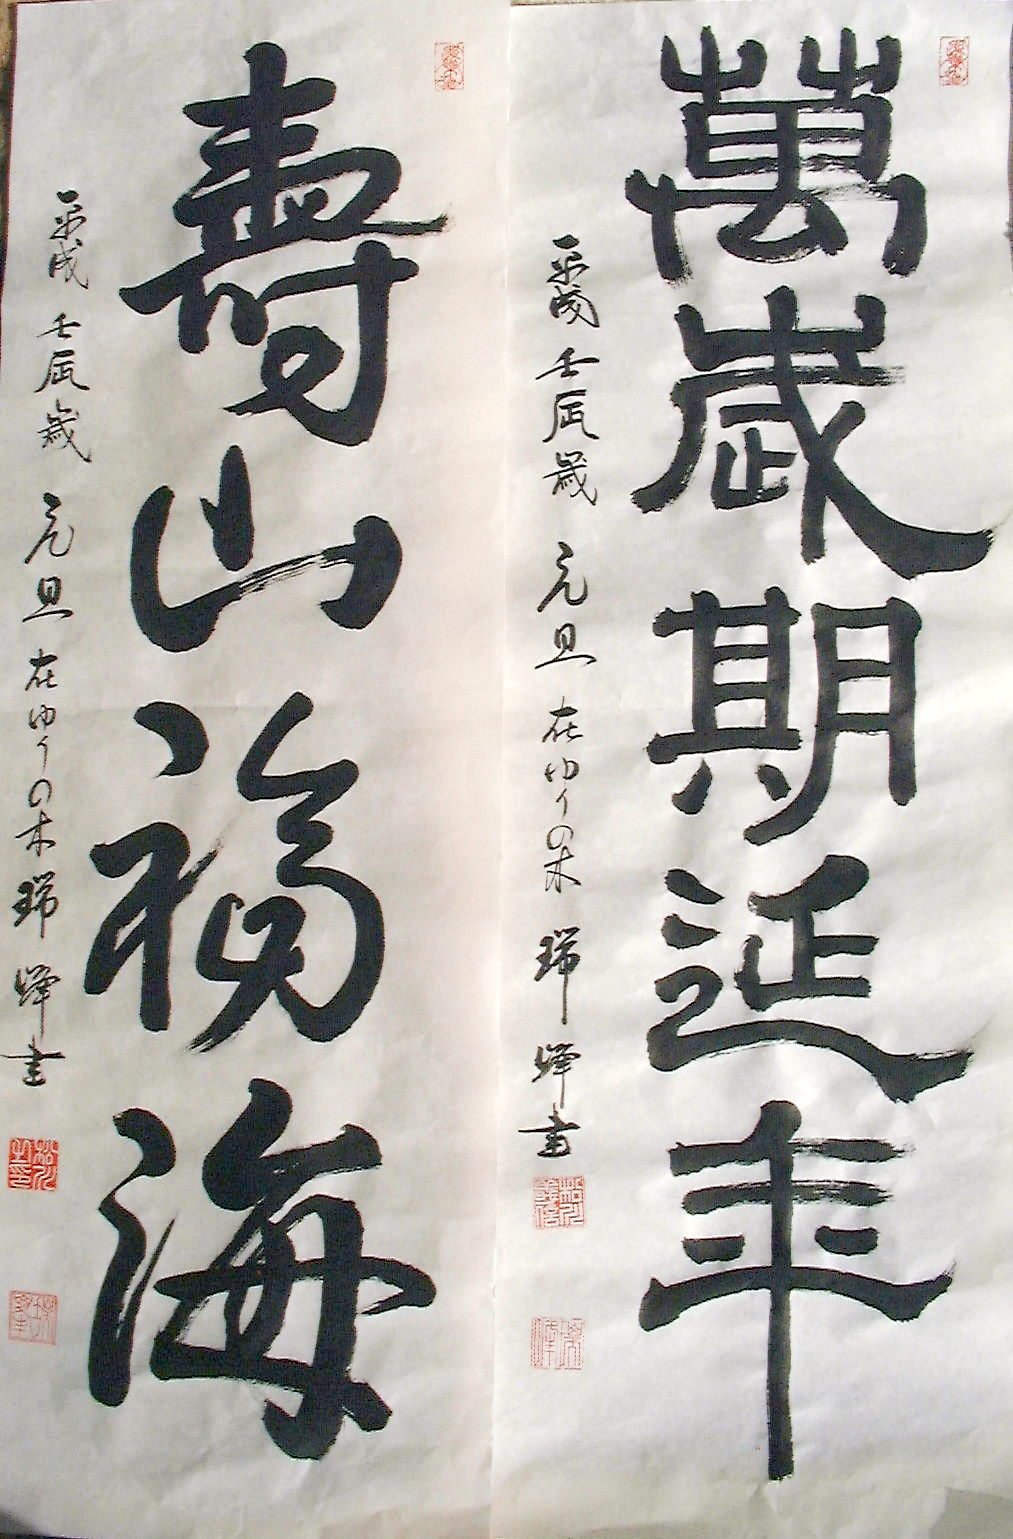 萬歳期延年
平成壬辰歳 元旦 在ゆりの木 瑞峰書
壽山福海
平成壬辰歳 元旦 在ゆりの木 瑞峰書